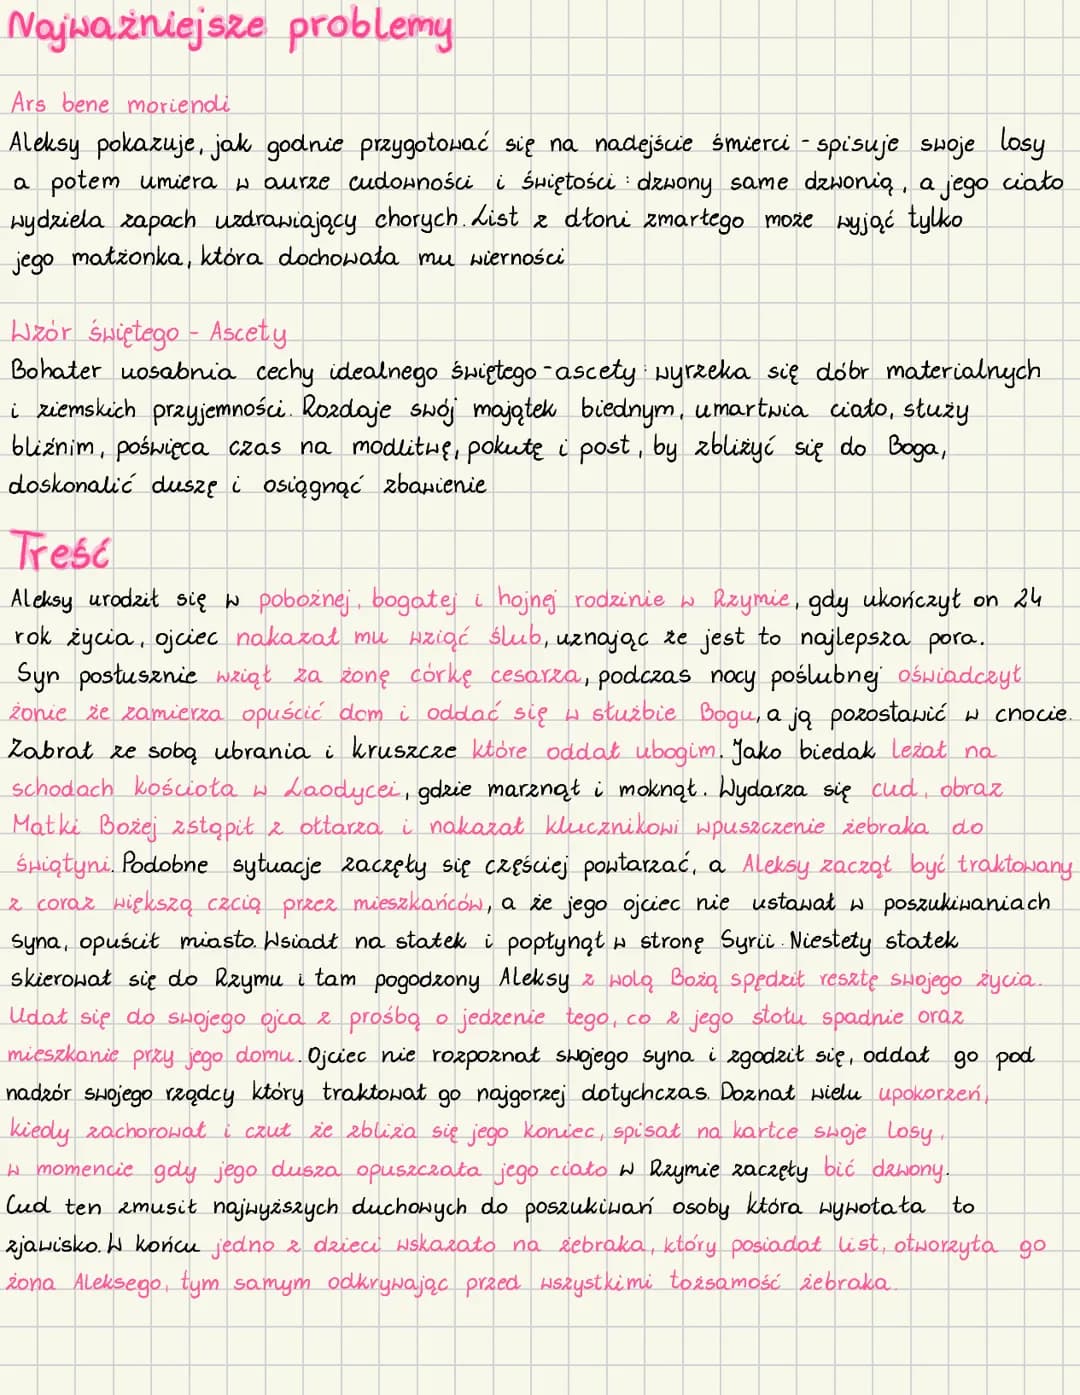 Najważniejsze problemy
Ars bene moriendi
Aleksy pokazuje, jak godnie przygotować się na nadejście śmierci - spisuje swoje losy
a potem umiera w aurze cudowności i świętości : dzwony same dzwonią, a jego ciało
wydziela zapach uzdrawiający chorych. List z dłoni zmarłego może wyjąć tylko
jego małżonka, która dochowała mu wierności
Wzór świętego - Ascety
Bohater uosabnia cechy idealnego świętego - ascety : wyrzeka się dóbr materialnych
i ziemskich przyjemności. Rozdaje swój majątek biednym, umartwia ciało, służy
bliźnim, poświęca czas na modlitwę, pokutę i post, by zbliżyć się do Boga,
doskonalić duszę i osiągnąć zbawienie
Treść
Aleksy urodził się w pobożnej, bogatej i hojnej rodzinie w Rzymie, gdy ukończył on 24
rok życia, ojciec nakazał mu wziąć ślub, uznając że jest to najlepsza pora.
Syn posłusznie wziął za żonę córkę cesarza, podczas nocy poślubnej oświadczył
żonie że zamierza opuścić dom i oddać się w służbie Bogu, a ją pozostawić w cnocie.
Zabrał ze sobą ubrania i kruszcze które oddał ubogim. Jako biedak leżał na
schodach kościoła w Laodycei, gdzie marznął i moknął. Wydarza się cud, obraz
Matki Bożej zstąpił z ołtarza i nakazał klucznikowi wpuszczenie żebraka do
świątyni. Podobne sytuacje zaczęły się częściej powtarzać, a Aleksy zaczął być traktowany
z coraz większą czcią przez mieszkańców, a że jego ojciec nie ustawał w poszukiwaniach
syna, opuścił miasto. Wsiadł na statek i popłynął w stronę Syrii. Niestety statek
skierował się do Rzymu i tam pogodzony Aleksy z wolą Bożą spędził resztę swojego życia.
Udał się do swojego ojca z prośbą o jedzenie tego, co z jego stołu spadnie oraz
mieszkanie przy jego domu. Ojciec nie rozpoznał swojego syna i zgodził się, oddał go pod
nadzór swojego rządcy który traktował go najgorzej dotychczas. Doznał wielu upokorzeń,
kiedy zachorował i czuł że zbliża się jego koniec, spisał na kartce swoje losy,
w momencie gdy jego dusza opuszczała jego ciało w Rzymie zaczęły bić dzwony.
Cud ten zmusił najwyższych duchowych do poszukiwań osoby która wywołała to
zjawisko. W końcu jedno z dzieci wskazało na żebraka, który posiadał list, otworzyła go
żona Aleksego, tym samym odkrywając przed wszystkimi tożsamość żebraka.